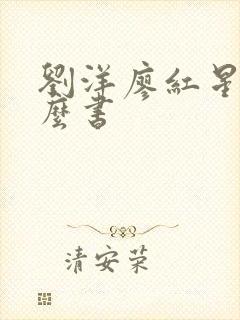 劉洋廖紅星
麼書
清安荣